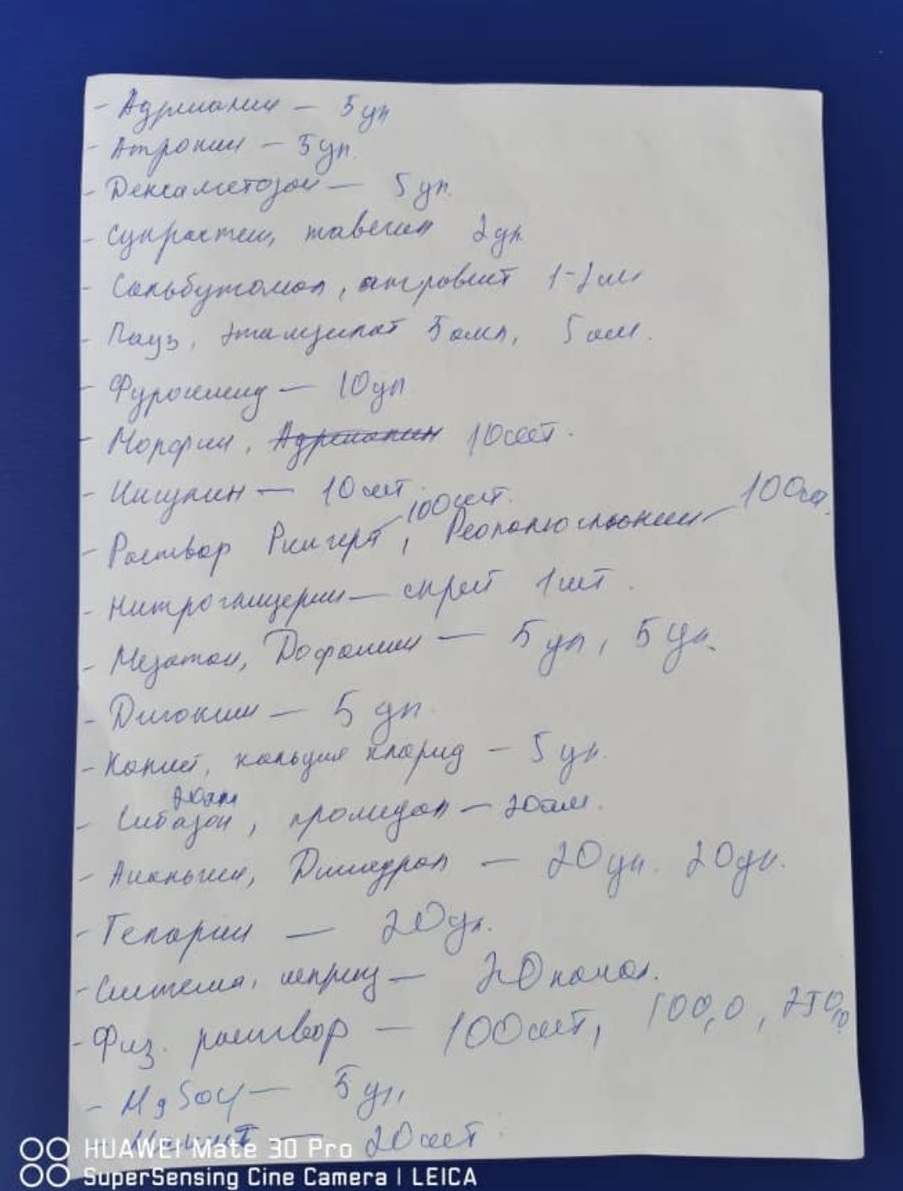 - Адреналин — 5 уп
- Атропин — 5 уп.
- Дексаметазон — 5 уп.
- Супрастин, тавегил 2 уп
- Сальбутамол, атровент 1-2 шт
- этамзилат 5 амп, 5 амп.
- Фуросемид — 10 уп
- Морфин, 10 шт.
- Инсулин — 10 шт.
- Раствор Рингера 100 шт., Реополиглюкин — 100 шт.
- Нитроглицерин — спрей 1 шт.
- Мезатон, Дофамин — 5 уп, 5 уп.
- Дигоксин — 5 уп.
- кальция хлорид — 5 уп.
- Сибазон, промедол — 20 ам.
- Анальгин, Димедрол — 20 уп. 20 уп.
- Гепарин — 20 уп.
- Система, шприц — 20
- Физ. раствор — 100 шт, 100,0, 250,0
- MgSO4 — 5 уп,
- 20 шт.
HUAWEI Mate 30 Pro
SuperSensing Cine Camera | LEICA